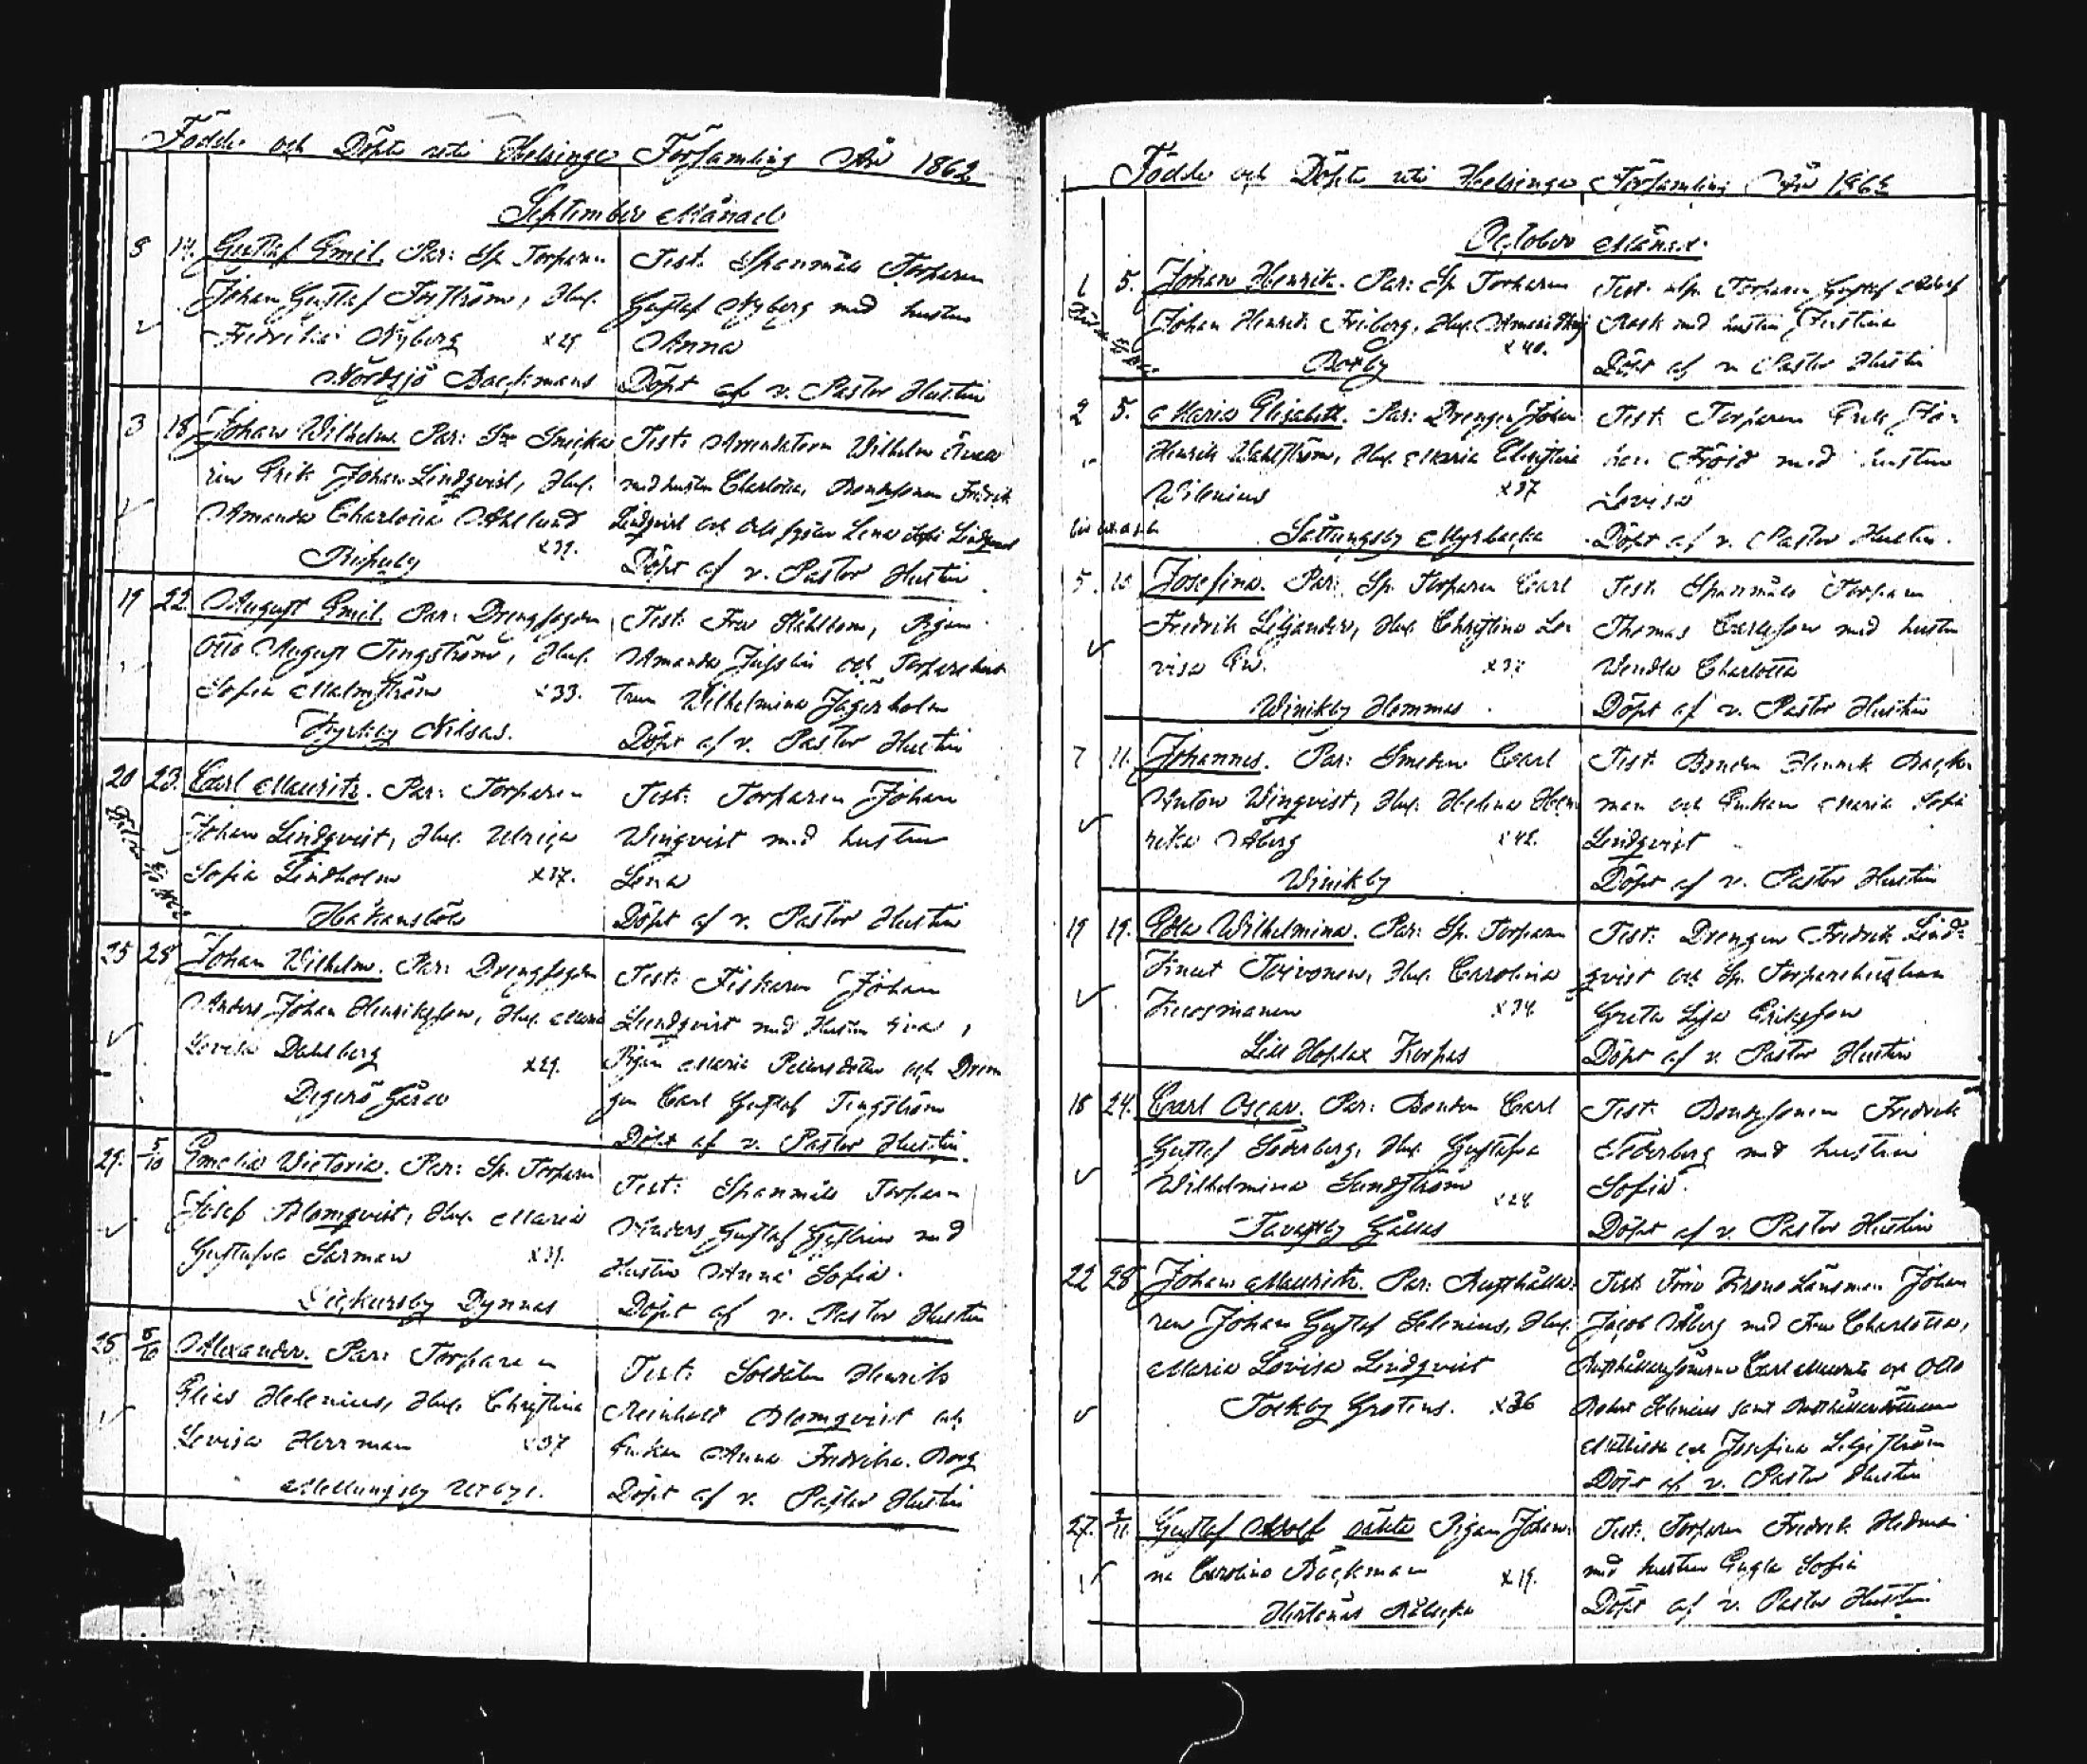 Födde och Döpte uti Helsinge Församling År 1862
September Månad
8 14. Gustaf Emil. Par: Sp. Torparen
Johan Gustaf Forsström, Hus.
Fredrika Nyberg x29
Nordsjö Backmans
Test: Spanmåls Torparen
Gustaf Nyberg med hustru
Anna
Döpt af v. Pastor Hustin
3 18 Johan Wilhelm. Par: Snicka
ren Erik Johan Lindqvist, Hus.
Amanda Charlotta Ahlund
x39.
Test: Arrendatorn Wilhelm
med hustru Charlotta, Bondesonen Fredrik
Lindqvist och dess syster Lena Sofia Lindqvist
Döpt af v. Pastor Hustin
19 22. August Emil. Par: Drengfogden
Otto August Tengström, Hus.
Sofia Malmström x33.
Nilsas.
Test: Fru Ståhlbom, Pigan
Amanda och Torparehust
trun Wilhelmina Jägerholm
Döpt af v. Pastor Hustin
20 23. Carl Mauritz. Par: Torparen
Johan Lindqvist, Hus. Ulrica
Sofia Lindholm x37.
Håkansböle
Test: Torparen Johan
Winqvist med hustru
Lena
Döpt af v. Pastor Hustin
25 28 Johan Wilhelm. Par: Drengfogden
Anders Johan Henriksson, Hus. Maria
Lovisa Dahlberg x29.
Degerö Gård
Test: Fiskaren Johan
Lundqvist med Hustru Eva,
Pigan Maria Petersdotter och Dren
gen Carl Gustaf Tengström
Döpt af v. Pastor Hustin.
29. 5/10 Emelia Victoria. Par: Sp. Torparen
Josef Blomqvist, Hus. Maria
Gustafva Sarman x39.
Dickursby Dynnas
Test: Spanmåls Torparen
Anders Gustaf med
Hustru Anna Sofia.
Döpt af v. Pastor Hustin
25 5/10 Alexander. Par: Torparen
Elias Helenius, Hus. Christina
Lovisa Herrman x37
Mellungsby
Test: Soldaten Henrik
Reinhold Blomqvist och
Enkan Anna Fredrika Borg
Döpt af v. Pastor Hustin
Födde och Döpte uti Helsinge Församling År 1862
October Månad.
1 5. Johan Henrik. Par: Sp. Torparen
Johan Henrik Friberg, Hus.
x40.
Botby
Test: Sp. Torparen Gustaf Adolf
Rask med hustru Justina
Döpt af v. Pastor Hustin
2 5. Maria Elisabeth. Par: Drengen Johan
Henrik Wahlström, Hus. Maria Christina
Wilenius x37
Sottungsby Myrbacka
Test: Torparen Erik Jo-
han Fröjd med hustru
Lovisa
Döpt af v. Pastor Hustin.
5. 10 Josefina. Par: Sp. Torparen Carl
Fredrik Liljander, Hus. Christina Lo
visa
Winikby Hommas
Test: Spanmåls Torparen
Thomas Carlsson med hustru
Wendla Charlotta
Döpt af v. Pastor Hustin
7 11. Johannes. Par: Smeden Carl
Anton Winqvist, Hus. Helena Hen
rika Åberg x42.
Winikby
Test: Bonden Henrik Back
man och Enkan Maria Sofia
Lindqvist
Döpt af v. Pastor Hustin
19 19. Edla Wilhelmina. Par: Sp. Torparen
Knut Toivonen, Hus. Carolina
Kuosmanen x34
Lill Hoplax Korpas
Test: Drengen Fredrik Lind-
qvist och Sp. Torparehustrun
Greta Lisa Eriksson
Döpt af v. Pastor Hustin
18 24. Carl Oscar. Par: Bonden Carl
Gustaf Söderberg, Hus. Gustafva
Wilhelmina Sundström x28
Tavastby Gållas
Test: Bondesonen Fredrik
Söderberg med hustru
Sofia.
Döpt af v. Pastor Hustin
22 28 Johan Mauritz. Par: Rusthålla-
ren Johan Gustaf Selenius, Hus.
Maria Lovisa Lindqvist
Tolkby Grotens. x36
Test: Krono Länsman Johan
Jacob Åberg med Fru Charlotta,
Rusthållaresönerne Carl Mauritz och Otto
Robert Selenius samt
Mathilda och Josefina Liljeström
Döpt af v. Pastor Hustin
27. 2/11. Gustaf Adolf oäkta Pigan Johan-
na Carolina Bäckman x19.
Hertonäs
Test: Torparen Fredrik Hedman
med hustru Sofia
Döpt af v. Pastor Hustin